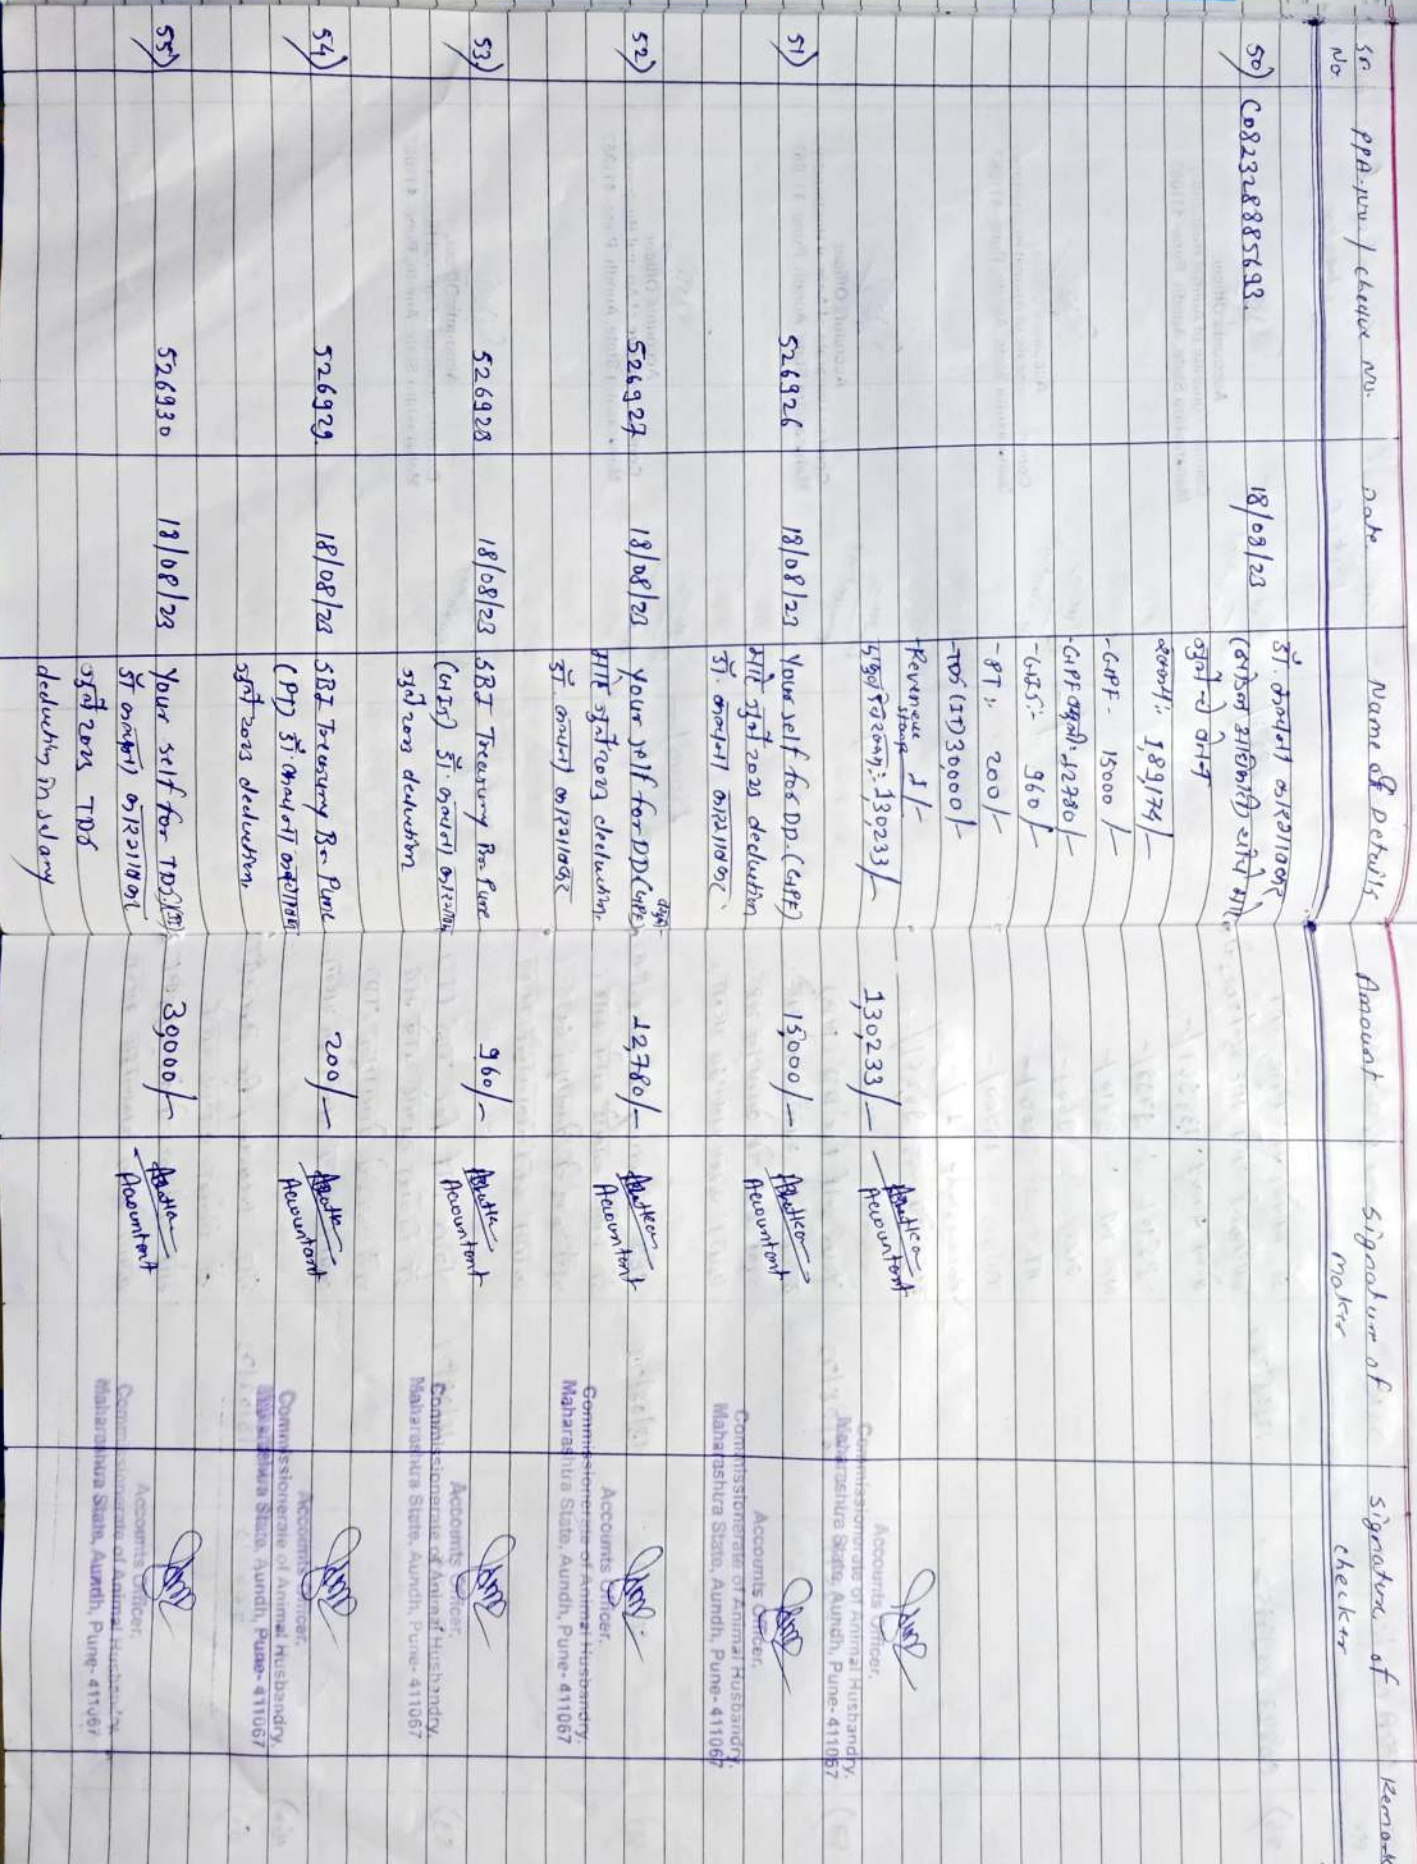 Sr. No.
PPA.NO / cheque No.
Date
Name of Details
Amount
Signature of Maker
Signature of checker
Remark
50) C082328885693
18/08/23
डॉ.
1,89,174/-
- GPF - 15000/-
- GPF वसुली: 12780/-
- GIS:- 960/-
- PT:- 200/-
- TDS (IT) 30,000/-
- Revenue stamp 1/-
1,30,233/-
1,30,233/-
Accountant
Accounts Officer,
Commissionerate of Animal Husbandry,
Maharashtra State, Aundh, Pune- 411067
51) 526926 18/08/23 Your self for DD.(GPF) 15,000/-
माहे जुलै 2023 dedution
डॉ.
Accountant
Accounts Officer,
Commissionerate of Animal Husbandry,
Maharashtra State, Aundh, Pune- 411067
52) 526927 18/08/23 Your self for DD (GPF) 12,780/-
माहे जुलै 2023 deduction.
डॉ.
Accountant
Accounts Officer,
Commissionerate of Animal Husbandry,
Maharashtra State, Aundh, Pune- 411067
53) 526928 18/08/23 SBI Treasury Br. Pune 960/-
(GIS) डॉ.
जुलै 2023 deduction
Accountant
Accounts Officer,
Commissionerate of Animal Husbandry,
Maharashtra State, Aundh, Pune- 411067
54) 526929 18/08/23 SBI Treasury Br. Pune 200/-
(PT) डॉ.
जुलै 2023 deduction.
Accountant
Accounts Officer,
Commissionerate of Animal Husbandry,
Maharashtra State, Aundh, Pune- 411067
55) 526930 18/08/23 Your self for TDS (IT) 30,000/-
डॉ.
जुलै 2023 TDS
deduction in salary
Accountant
Accounts Officer,
Commissionerate of Animal Husbandry,
Maharashtra State, Aundh, Pune- 411067